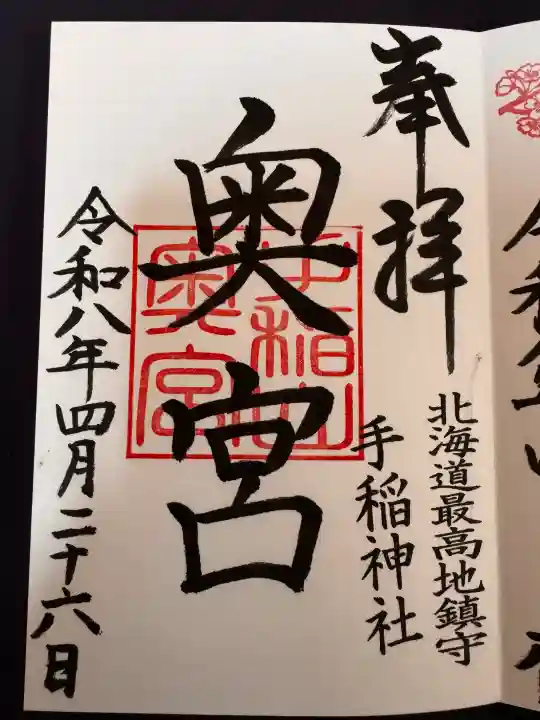 奉拝
北海道最高地鎮守
手稲神社
奥宮
手稲山
奥宮
令和八年四月二十六日